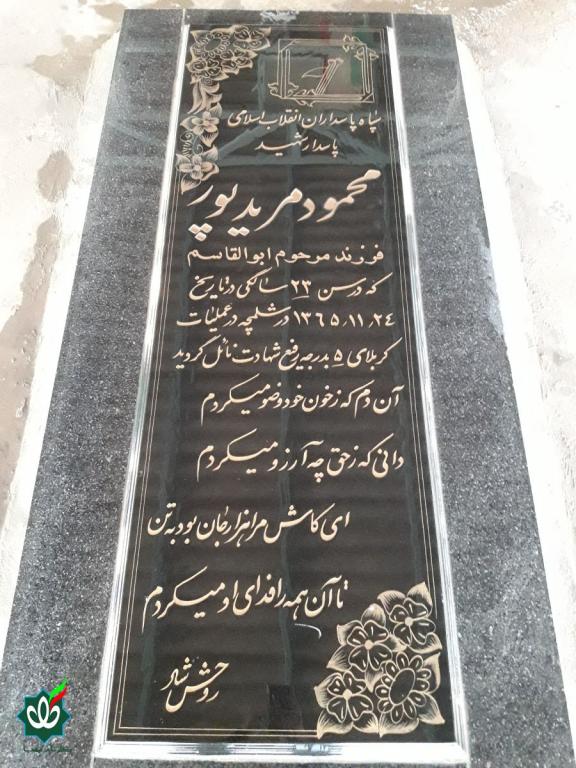 سپاه پاسداران انقلاب اسلامی
پاسدار شهید
محمود مریدپور
فرزند مرحوم ابوالقاسم
که در سن ۲۳ سالگی در تاریخ
۱۳۶۵/۱۱/۲۴ در شلمچه در عملیات
کربلای ۵ بدرجه رفیع شهادت نائل گردید
آن دم که ز خون خود وضو میکردم
دانی که ز حق چه آرزو میکردم
ای کاش مرا هزار جان بود به تن
تا آن همه را فدای او میکردم
روحش شاد